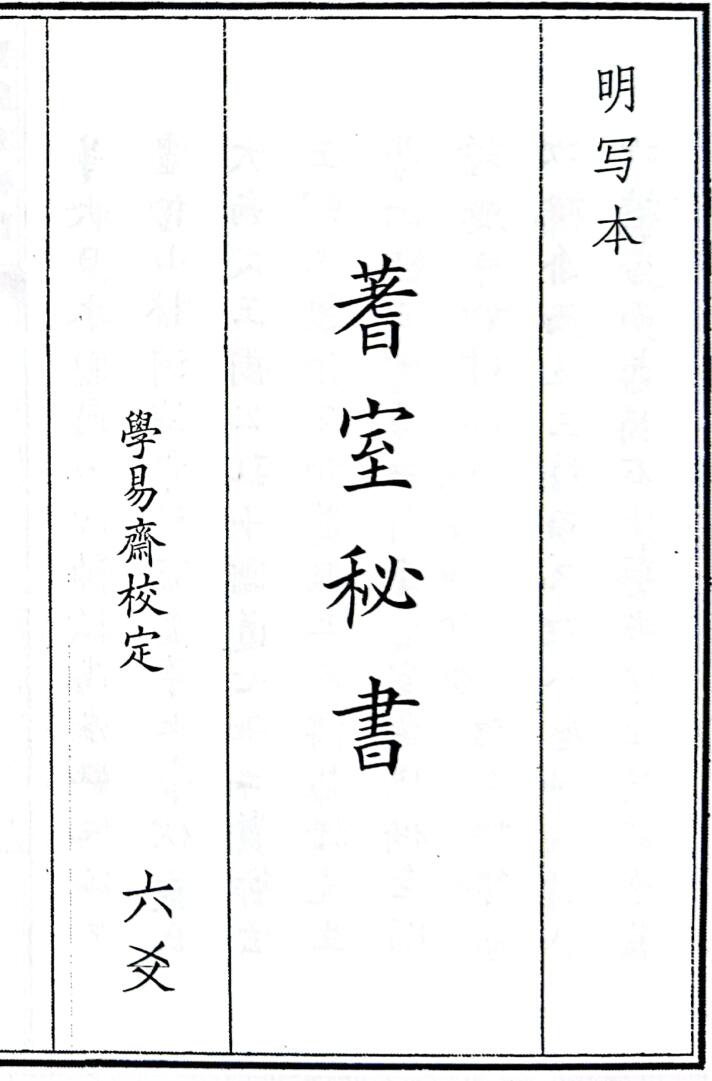 明写本
蓍室秘書
學易齋校定
六爻